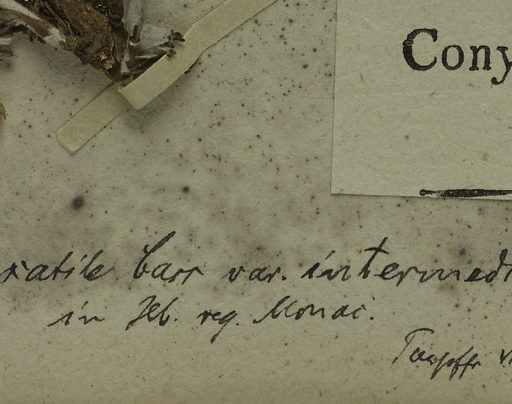 Cony
xatile barr var. intermedi
in Hb. reg. Monac.
Toepffr